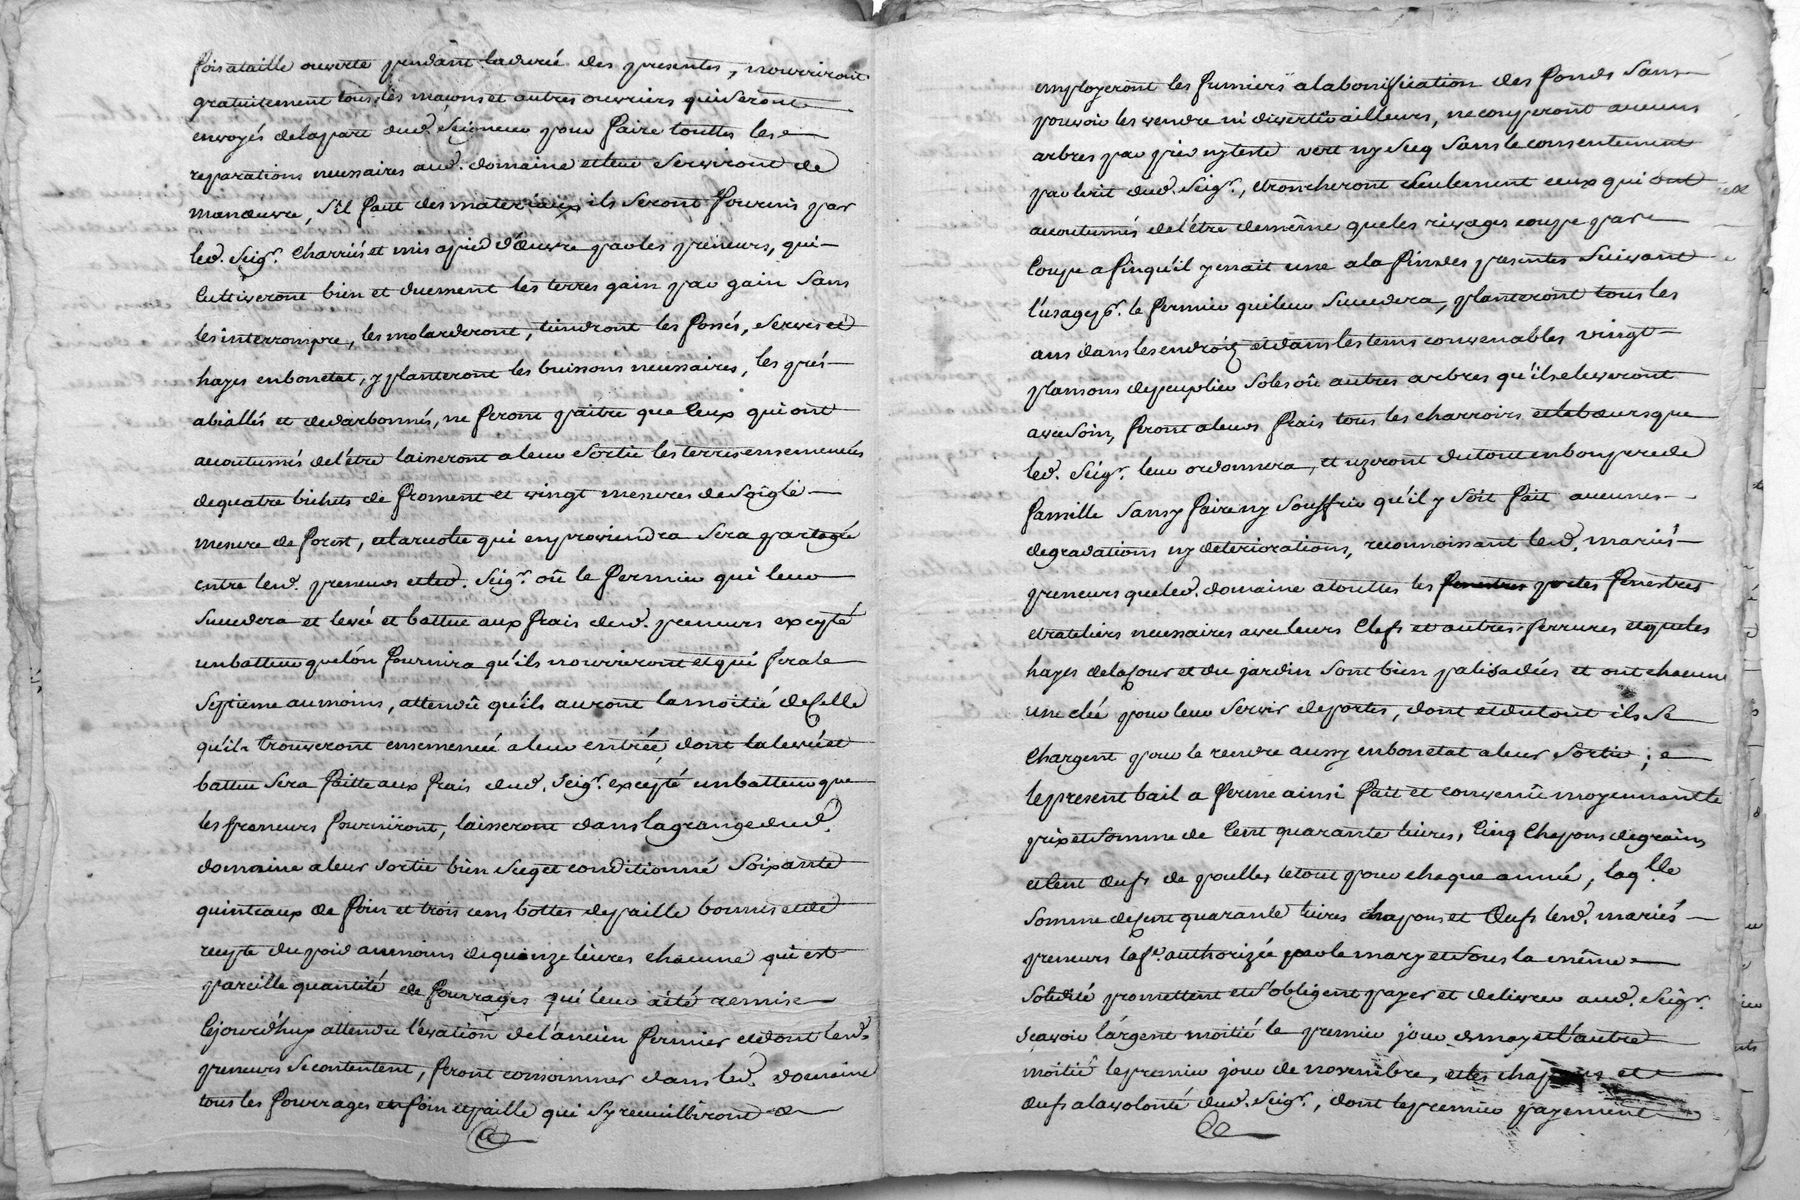 fois a taille ouverte pendant la durée des presentes, nourriront
gratuitement tous les maçons et autres ouvriers qui seront
envoyés de la part dud. Seigneur pour faire touttes les
reparations necessaires aud. domaine et leur serviront de
manœuvre, s'il faut des materiaux ils seront fournis par
led. Seigr. charriés et mis a pied d'œuvre par les preneurs, qui
cultiveront bien et duement les terres gain par gain sans
les interrompre, les molarderont, tiendront les fossés, serves et
hayes en bon etat, y planteront les buissons necessaires, les prés
abiallés et dedarbonnés, ne feront paitre que ceux qui ont
accoutumés de l'étre laisseront a leur sortie les terres ensemencées
de quatre bichets de froment et vingt mesures de soigle
mesure de forest, et la recolte qui en proviendra sera partagée
entre lesd. preneurs et led. Seigr. oû le fermier qui leur
succedera et levée et battue aux frais desd. preneurs excepté
un batteur que l'on fournira qu'ils nourriront et qui fera le
septieme au moins, attendû qu'ils auront la moitié de celle
qu'ils trouveront ensemencée a leur entrée, dont la levée et
battue sera faitte aux frais dud. Seigr. excepté un batteur que
les preneurs fourniront, laisseront dans la grange dud.
domaine a leur sortie bien sec et conditionné soixante
quinteaux de foin et trois cens bottes de paille bonnes et de
recepte du poid au moins de quinze livres chacune qui est
pareille quantité de fourrages qui leur a été remise
cejourd'huy attendu l'exation de l'ancien fermier et dont lesd.
preneurs se contentent, feront consommer dans led. domaine
tous les fourrages et foin et paille qui sy recuilliront et
employeront les fumiers a la bonification des fonds sans
pouvoir les vendre ni divertir ailleurs, ne couperont aucuns
arbres par pied ny teste vert ny secq sans le consentement
par ecrit dud. Seigr., etroncheront seulement ceux qui ont
accoutumés de l'étre de même que les rivages coupe par
coupe afin qu'il y en ait une a la fin des presentes suivant
l'usage pr. le fermier qui leur succedera, planteront tous les
ans dans les endroits et dans les tems convenables vingt
plansons de peuplier soles oû autres arbres qu'ils eleveront
avec soin, feront a leurs frais tous les charroirs et labeurs que
led. Seigr. leur ordonnera, et uzeront du tout en bon pere de
famille sans y faire ny souffrir qu'il y soit fait aucunes
degradations ny deteriorations, reconnoissant lesd. mariés
preneurs que led. domaine a touttes les portes fenestres
et rateliers necessaires avec leurs clefs et autres ferrures et que les
hayes de la cour et du jardin sont bien palissadées et ont chacune
une clée pour leur servir de portes, dont et du tout ils se
chargent pour le rendre aussy en bon etat a leur sortie;
le present bail a ferme ainsi fait et convenû moyennant le
prix et somme de cent quarante livres, cinq chapons de grain,
et cent œufs de poulles le tout pour chaque année, laqlle
somme de cent quarante livres chapons et œufs lesd. mariés
preneurs la fe. authorizée par le mary et sous la même
solidité promettent et s'obligent payer et delivrer aud. Seigr.
scavoir l'argent moitié le premier jour de may et l'autre
moitié le premier jour de novembre, et les chapons et
œufs a la volonté dud. Seigr., dont le premier payement